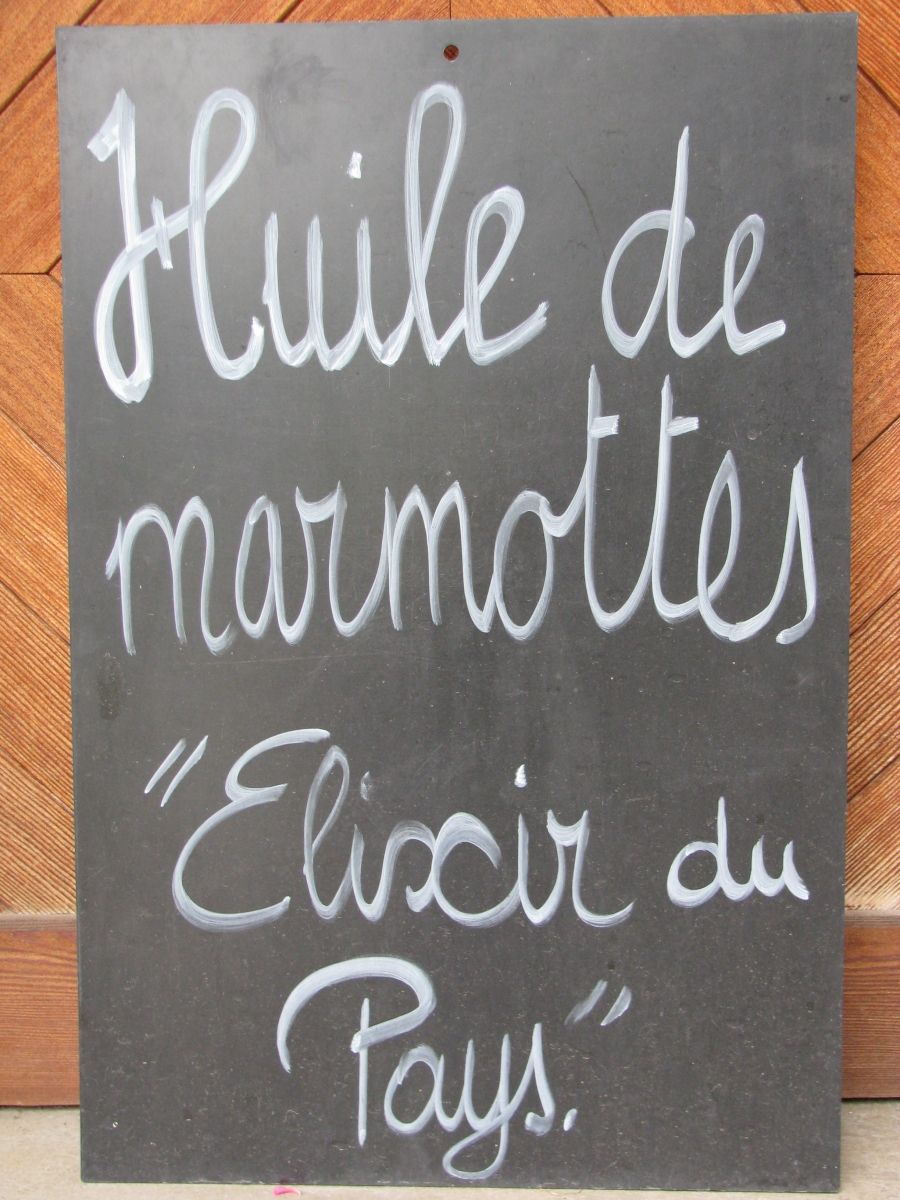 Huile de
marmottes
"Elixir du
Pays."